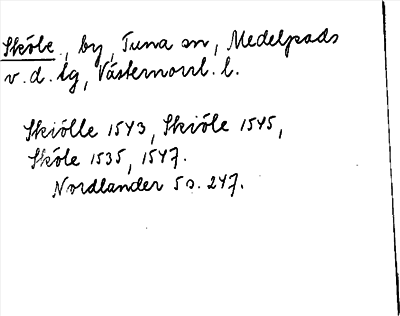 Sköle, by, Tuna sn, Medelpads
v. d. lg, Västernorrl. l.
Skiölle 1543, Skiöle 1545,
Sköle 1535, 1547.
Nordlander 5 s. 247.